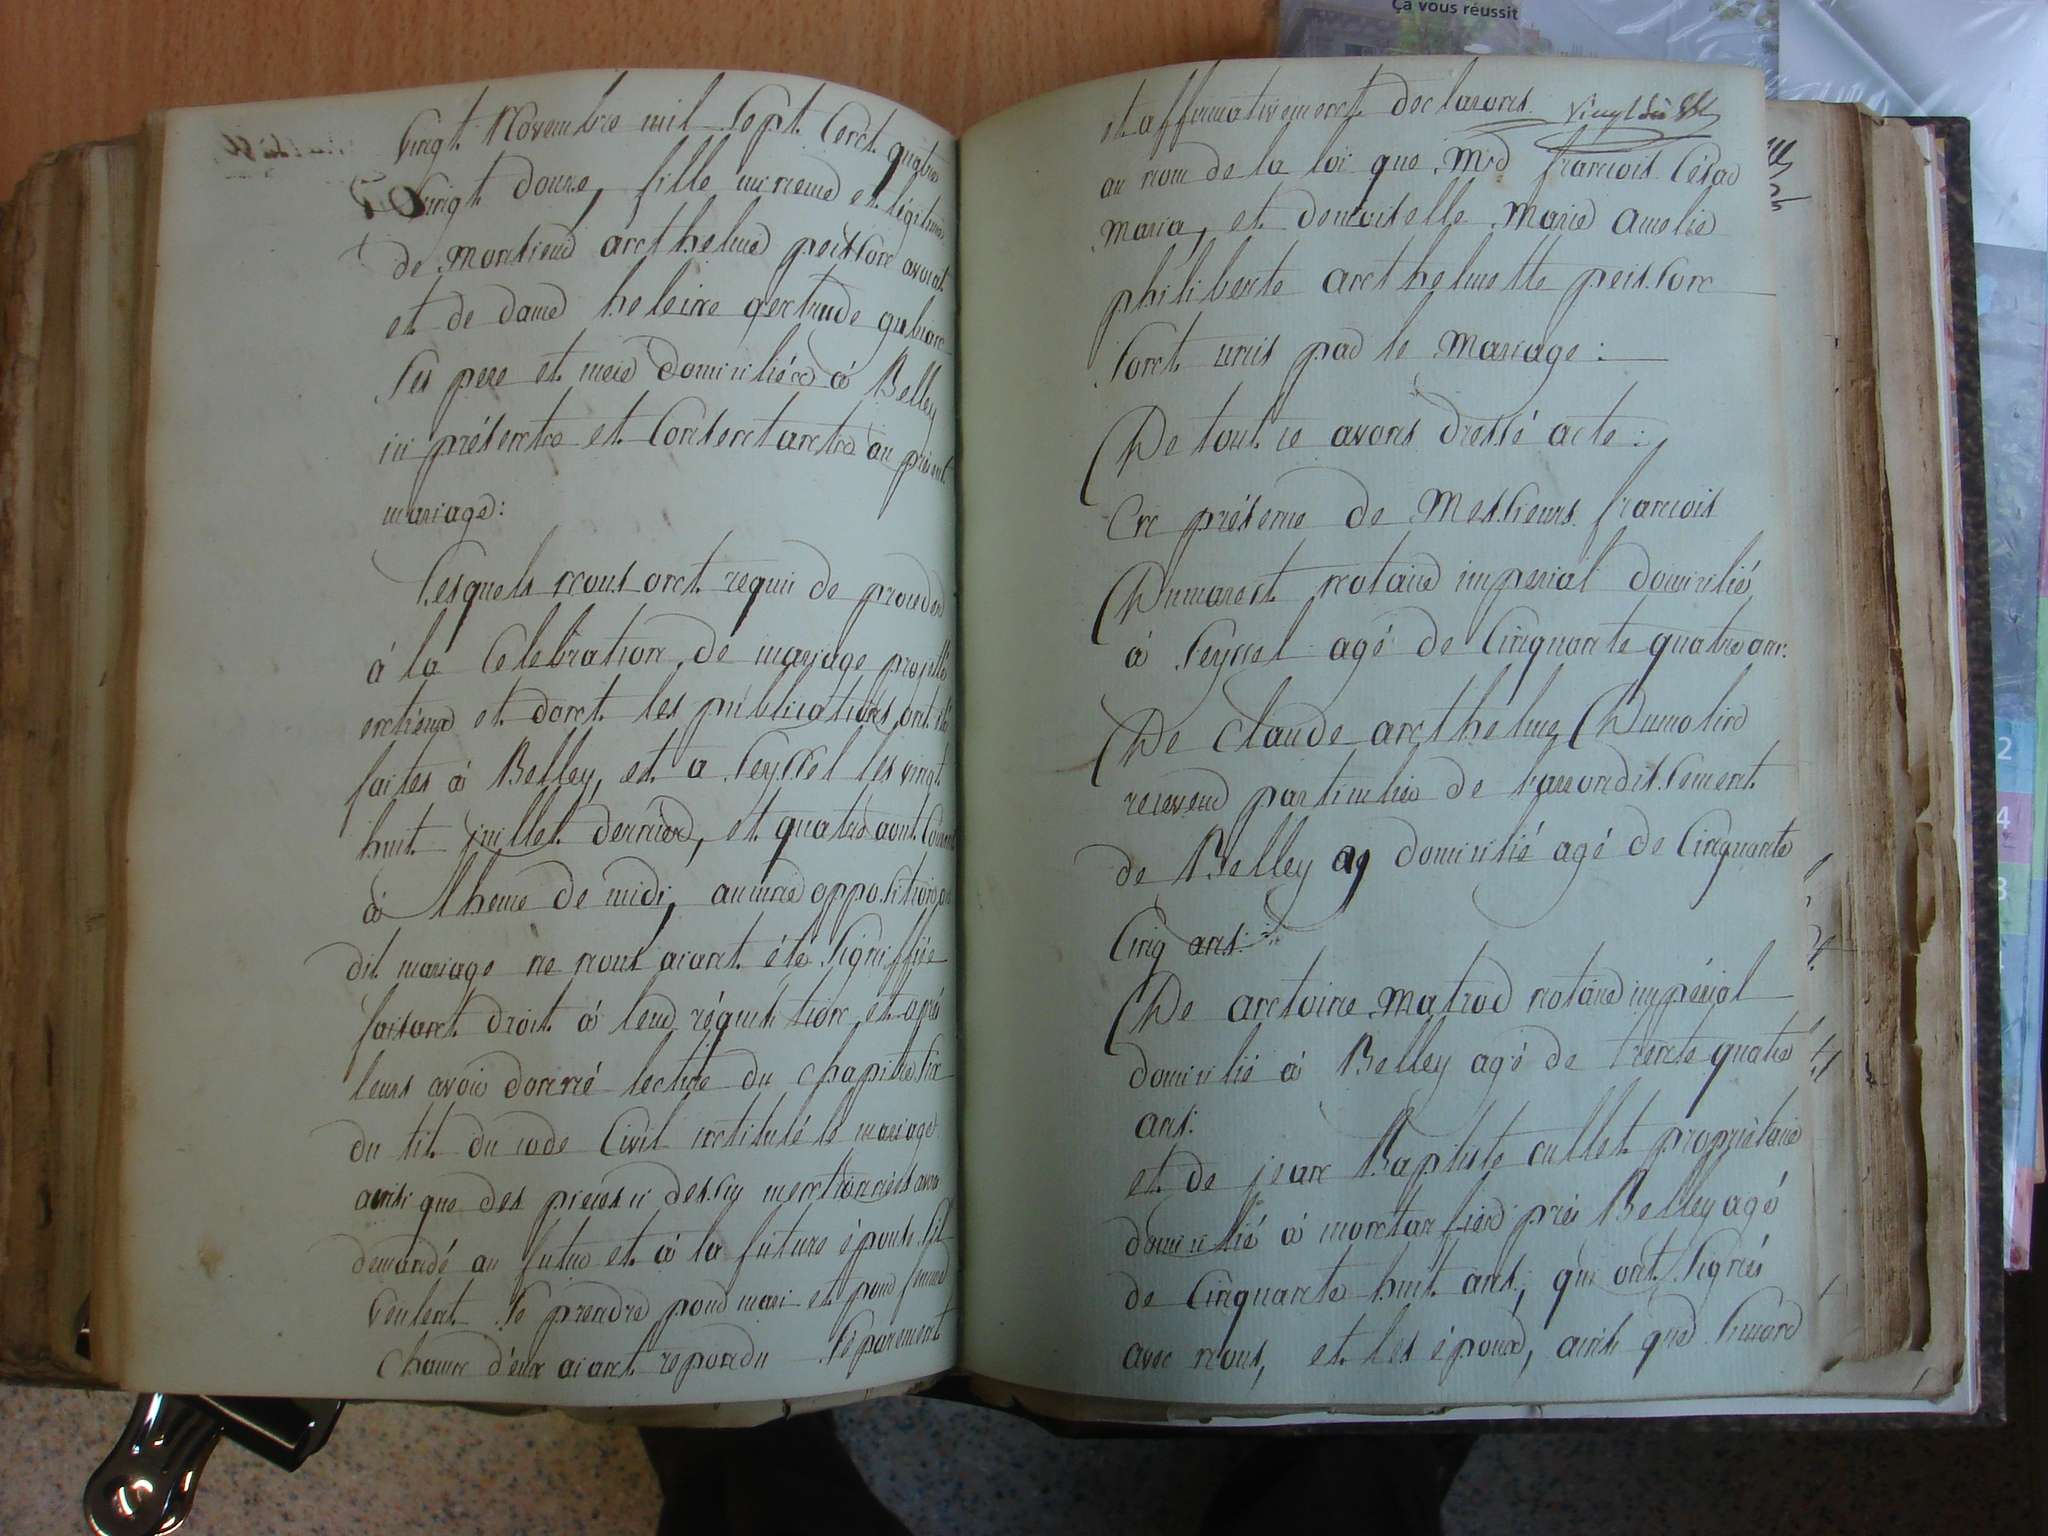 Vingt Novembre mil Sept Cent quatre
Vingt douze, fille mineure et légitime
de Monsieur anthelme peisson avocat
et de dame heleine gertrude
Ses pere et mere domiciliéra à Belley
ici présentra et Consentantra au présent
mariage:
Lesquels nous ont requis de proceder
à la Celebration de mariage projetté
entreux et dont les publications ont été
faites à Belley, et a Seyssel les vingt
huit juillet dernier, et quatre aout Courant
à lheure de midi, aucune opposition au
dit mariage ne nous aiant été Signiffiée
faisant droit à leur réquisition et après
leurs avoir donné lecture du chapitre Six
du tit. du code Civil intitulé le mariage
ainsi que des pieces ci dessus mentionnées avons
demandé au futur et à la future épouse s'il
veulent Se prendre pour mari et pour femme
Chacun d'eux aiant repondu Separement
et affirmativement declarons
au nom de la loi que Mr francois César
Maria, et demoiselle Marie Amelie
philiberte anthelmette peisson
Sont unis par le Mariage:
De tout ce avons dressé acte:
En présence de Messieurs francois
Dumarest notaire imperial domicilié
à Seyssel agé de Cinquante quatre ans.
De Claude anthelme Dumolin
receveur particulier de l'arrondissement
de Belley ay domicilié agé de Cinquante
Cinq ans:
De antoine Matrod notaire impérial
domicilié à Belley agé de trente quatre
ans:
et de jean Baptiste cullet propriétaire
domicilié à près Belley agé
de Cinquante huit ans, qui ont Signés
avec nous, et les époux, ainsi que
Ça vous réussit
2
4
3